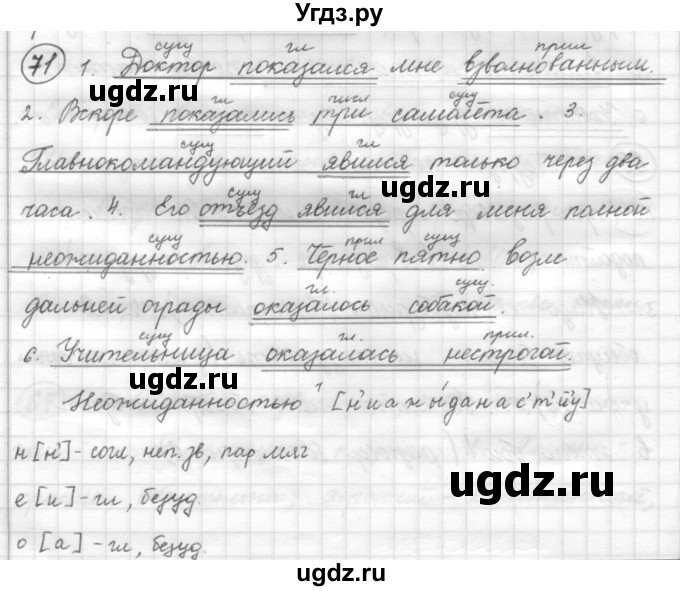 Угдз.ру
сущ гл прил
71 1. Доктор показался мне взволнованным.
гл числ сущ
2. Вскоре показались три самолёта. 3.
сущ гл
Главнокомандующий явился только через два
сущ гл
часа. 4. Его отъезд явился для меня полной
сущ прил сущ
неожиданностью. 5. Чёрное пятно возле
гл. сущ.
дальней ограды оказалось собакой.
сущ гл. прил.
6. Учительница оказалась нестрогой.
Неожиданностью ¹ [н'иажыданас'т'й'у]
н [н'] - согл, неп. зв, пар мяг
е [и] - гл, безуд.
о [а] - гл, безуд.
ugdz.ru
ugdz.ru
ugdz.ru
ugdz.ru
ugdz.ru
ugdz.ru
ugdz.ru